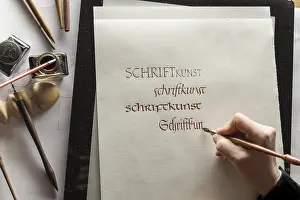 SCHRIFTKUNST
schriftkunst
SCHRIFTKUNST
Schriftkun